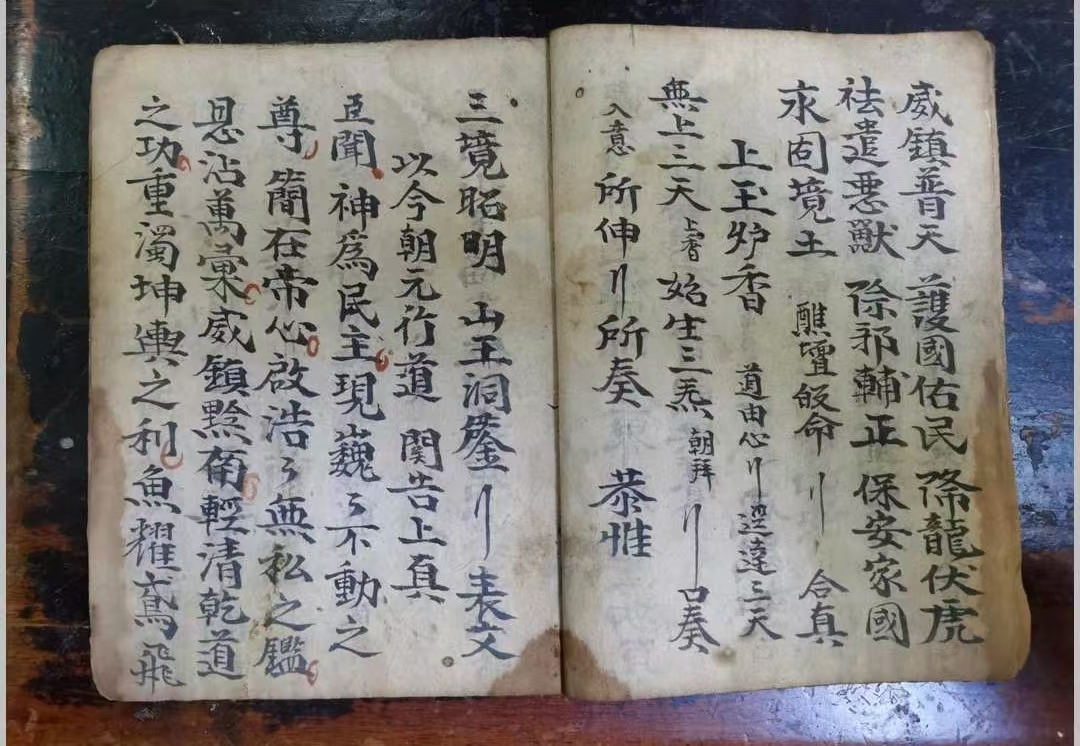 威鎮普天 護國佑民 降龍伏虎
祛遣惡獸 除邪輔正 保安家國
永固境土 醮壇 命 〢 合真
上玉炉香 道由心〢 逕達三天
無上三天 上香 始生三炁 朝拜 〢 口奏
入意 所伸〢所奏 恭惟
三境昭明 山王洞鑒〢表文
以今朝元行道 関告上真
臣聞 神為民主現巍〻不動之
尊簡在帝心啟浩〻無私之鑑
恩沾萬彙威鎮黔 輕清乾道
之功重濁坤輿之利魚耀鳶飛